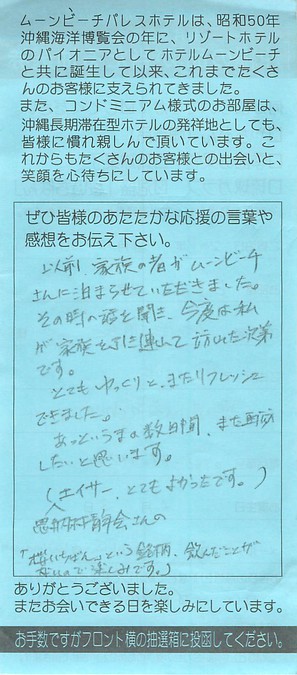 ムーンビーチパレスホテルは、昭和50年
沖縄海洋博覧会の年に、リゾートホテル
のパイオニアとしてホテルムーンビーチ
と共に誕生して以来、これまでたくさ
んのお客様に支えられてきました。
また、コンドミニアム様式のお部屋は、
沖縄長期滞在型ホテルの発祥地としても、
皆様に慣れ親しんで頂いています。こ
れからもたくさんのお客様との出会いと、
笑顔を心待ちにしています。
ぜひ皆様のあたたかな応援の言葉や
感想をお伝え下さい。
以前、家族の者がムーンビーチ
さんに泊まらせていただきました。
その時の話を聞き、今度は私
が家族を引き連れて訪れた次第
です。
とてもゆっくりと、またリフレッシュ
できました。
あっというまの数日間、また再訪
したいと思います。
(エイサー、とてもよかったです。)
青年会さんの
という銘柄、飲んだことが
ないので楽しみです。)
ありがとうございました。
またお会いできる日を楽しみにしています。
お手数ですがフロント横の抽選箱に投函してください。